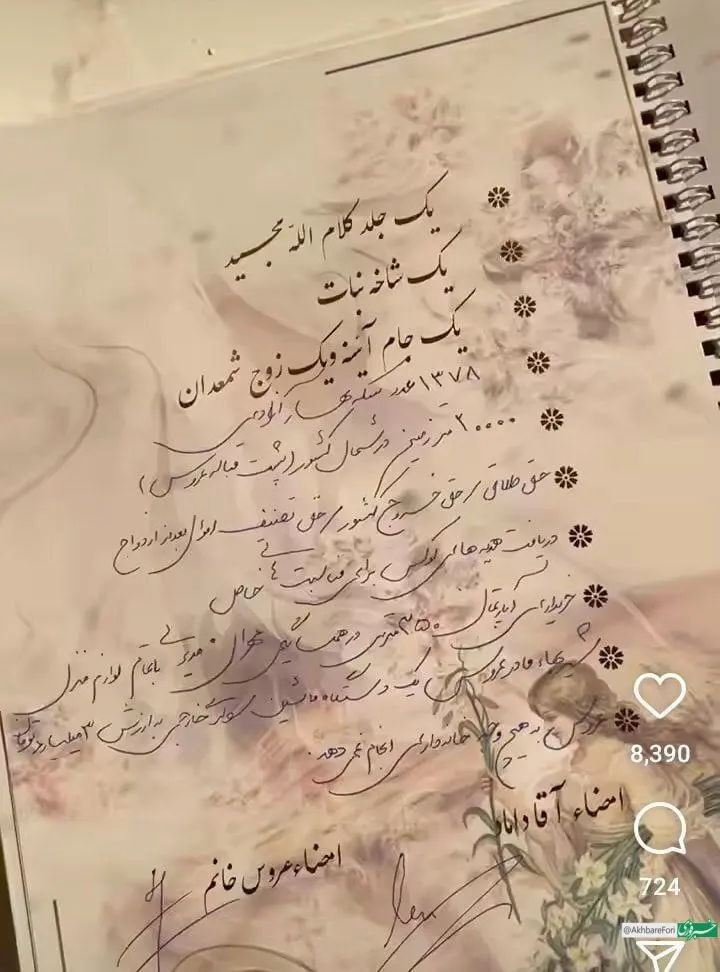 یک جلد کلام الله مجید
یک شاخه نبات
یک جام آینه و یک زوج شمعدان
۱۳۷۸ عدد سکه بهار آزادی
۲۰۰۰۰ متر زمین در شمال کشور (پشت قباله عروس)
حق طلاق، حق خروج کشور، حق تصنیف اموال بعد از ازدواج
دریافت هدیه های لوکس برای مناسبت های خاص
خریداری آپارتمان ۳۵۰ متری در تهران با تمام لوازم منزل
شیربهاء مادر عروس یک دستگاه ماشین سوکر خارجی به ارزش ۳ میلیارد تومان
عروس به هیچ وجه خانه داری انجام نمی دهد.
امضاء آقا داماد
امضاء عروس خانم
8,390
724
@AkhbareFori
خبرفوری